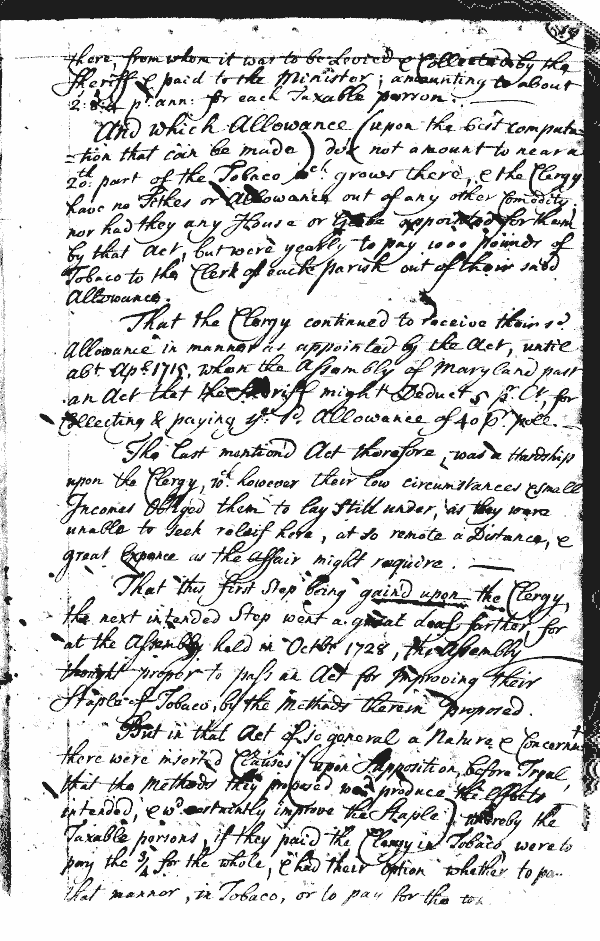 there, from whom it was to be Levied & Collected by the
Sheriff & paid to the Minister; amounting to about
pr. ann: for each Taxable person.
And which Allowance (upon the best computa=
=tion that can be made) does not amount to near a
20th part of the Tobacco wch. grows there, & the Clergy
have no Tithes or Allowance out of any other Comodity,
nor had they any House or Glebe appointed for them
by that Act, but were yearly to pay 1000 pounds of
Tobacco to the Clerk of each Parish out of their said
Allowance.
That the Clergy continued to receive their sd.
Allowance in manner as appointed by the Act, until
abt. Apl. 1715, when the Assembly of Maryland past
an Act that the Sheriff might Deduct 5 pr. Ct. for
Collecting & paying Allowance of 40 pr. pole.
The last mention'd Act therefore, was a Hardship
upon the Clergy, wch. however their low circumstances & small
Incomes Obliged them to lay still under, as they were
unable to seek releif here, at so remote a Distance, &
great Expence as the affair might require.
That this first Step being gain'd upon the Clergy,
the next intended Step went a great deal further, for
at the Assembly held in Octbr. 1728, the Assembly
thought proper to pass an Act for improving their
Staple of Tobacco, by the Methods therein proposed.
But in that Act of so general a Nature, & Concernmt
there were inserted Clauses (upon Supposition, before Tryal,
that the Methods they proposed wod. produce the effects
intended, & wd. certainly improve the Staple) whereby the
Taxable persons, if they paid the Clergy in Tobacco, were to
pay the 3/4 for the whole, & had their Option whether to pay
that manner, in Tobacco, or to pay for the